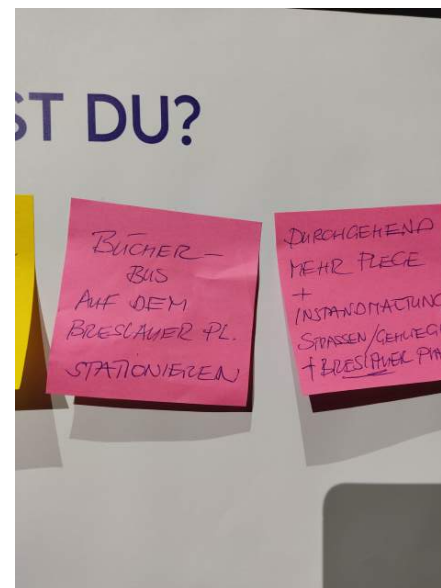 ST DU?
BÜCHER-
BUS
AUF DEM
BRESLAUER PL.
STATIONIEREN
DURCHGEHEND
MEHR PLEGE
+
INSTANDHALTUNG
STRASSEN/GEHWEGE
+ BRESLAUER PLA